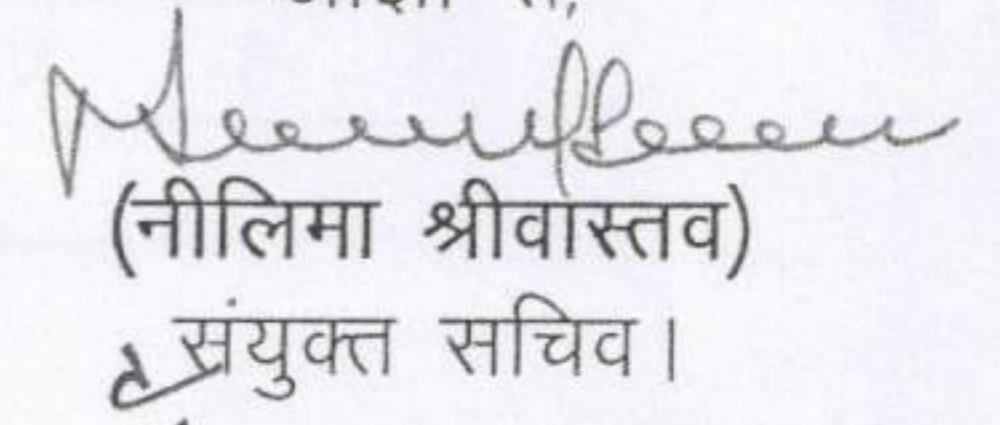 (नीलिमा श्रीवास्तव)
संयुक्त सचिव।